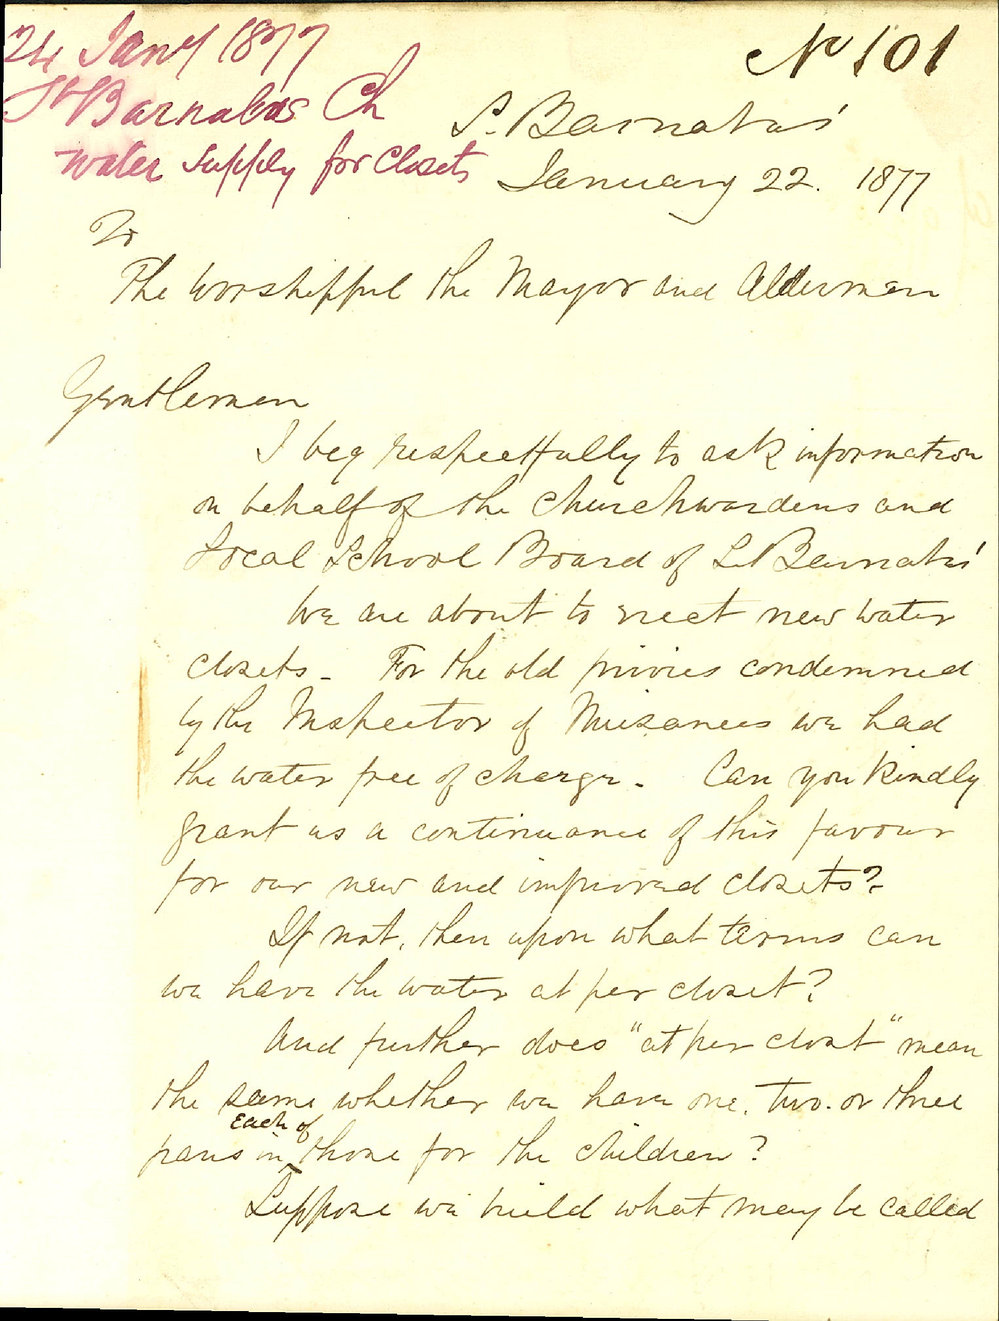 24 Jany 1877
St Barnabas Ch
Water Supply for Closets
No 101
St. Barnabas'
January 22. 1877
To
The Worshipful the Mayor and Aldermen
Gentlemen
I beg respectfully to ask information
on behalf of the Churchwardens and
Local School Board of St Barnabas'
We are about to erect new water
closets - For the old privies condemned
by the Inspector of Nuisances we had
the water free of charge. Can you kindly
grant us a continuance of this favour
for our new and improved closets?
If not, then upon what terms can
we have the water at per closet?
And further does "at per closet" mean
the same whether we have one, two. or three
each of
pans in those for the children?
Suppose we build what may be called